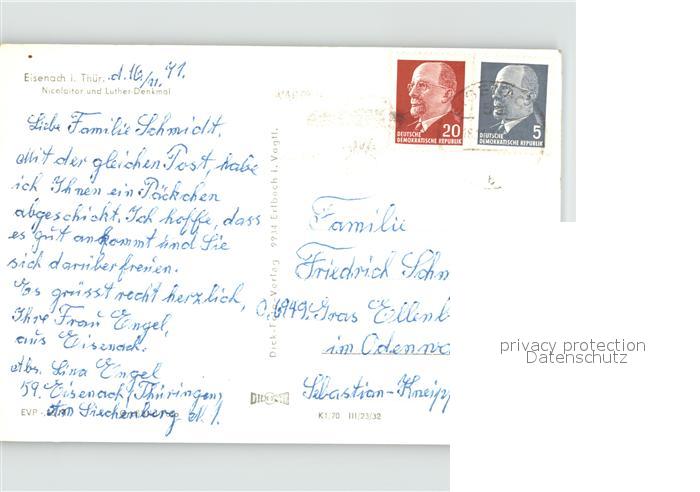 Eisenach i. Thür. d. 16/11. 71.
Nicolaitor und Luther-Denkmal
Liebe Familie Schmidt.
Mit der gleichen Post, habe
ich Ihnen ein Päckchen
abgeschickt. Ich hoffe, dass
es gut ankommt und Sie
sich darüber freuen.
Es grüsst recht herzlich,
Ihre Frau Engel,
aus Eisenach.
Abs. Lina Engel
59. Eisenach/Thüringen,
Am Siechenberg N. 1.
EVP
Verlag 9934 Erlbach i. Vogtl.
K1/70 III/23/32
20
DEUTSCHE
DEMOKRATISCHE REPUBLIK
5
DEUTSCHE
DEMOKRATISCHE REPUBLIK
Familie
Friedrich Schm
6949. Gras Ellenb
im Odenwa
Sebastian-Kneipp
privacy protection
Datenschutz